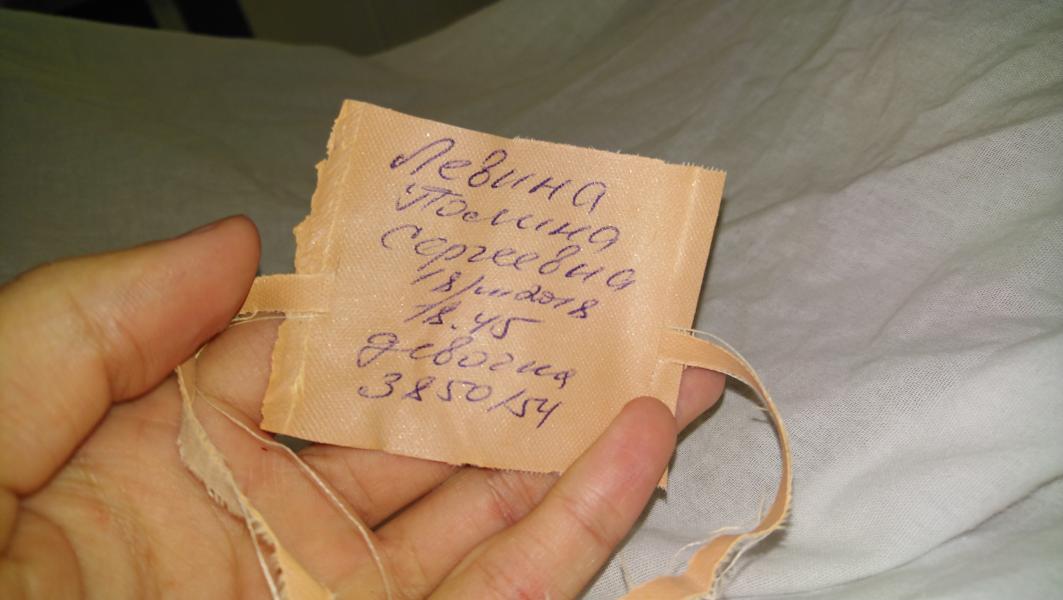 Левина
Полина
Сергеевна
18/III 2018
18.45
девочка
3850/54